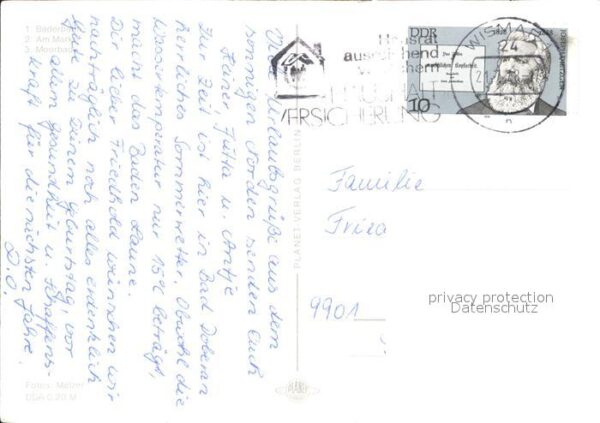 1. Bäderbahn
2. Am Markt
3. Moorbad
Viele Urlaubsgrüße aus dem
sonnigen Norden senden Euch
Rainer, Jutta u. Antje
Zur Zeit ist hier in Bad Doberan
herrliches Sommerwetter. Obwohl die
Wassertemperatur nur 15°C beträgt,
macht das Baden Laune.
Dir lieber Friedhold wünschen wir
nachträglich noch alles erdenklich
Gute zu Deinem Geburtstag, vor
allem Gesundheit u. Schaffens-
kraft für die nächsten Jahre.
D. O.
Fotos: Mälzer
DDR 0,20 M
PLANET-VERLAG BERLIN
Hausrat
ausreichend
versichern
HAUSHALT
VERSICHERUNG
DDR
10
WISMAR
24
Familie
Friza
9901
privacy protection
Datenschutz